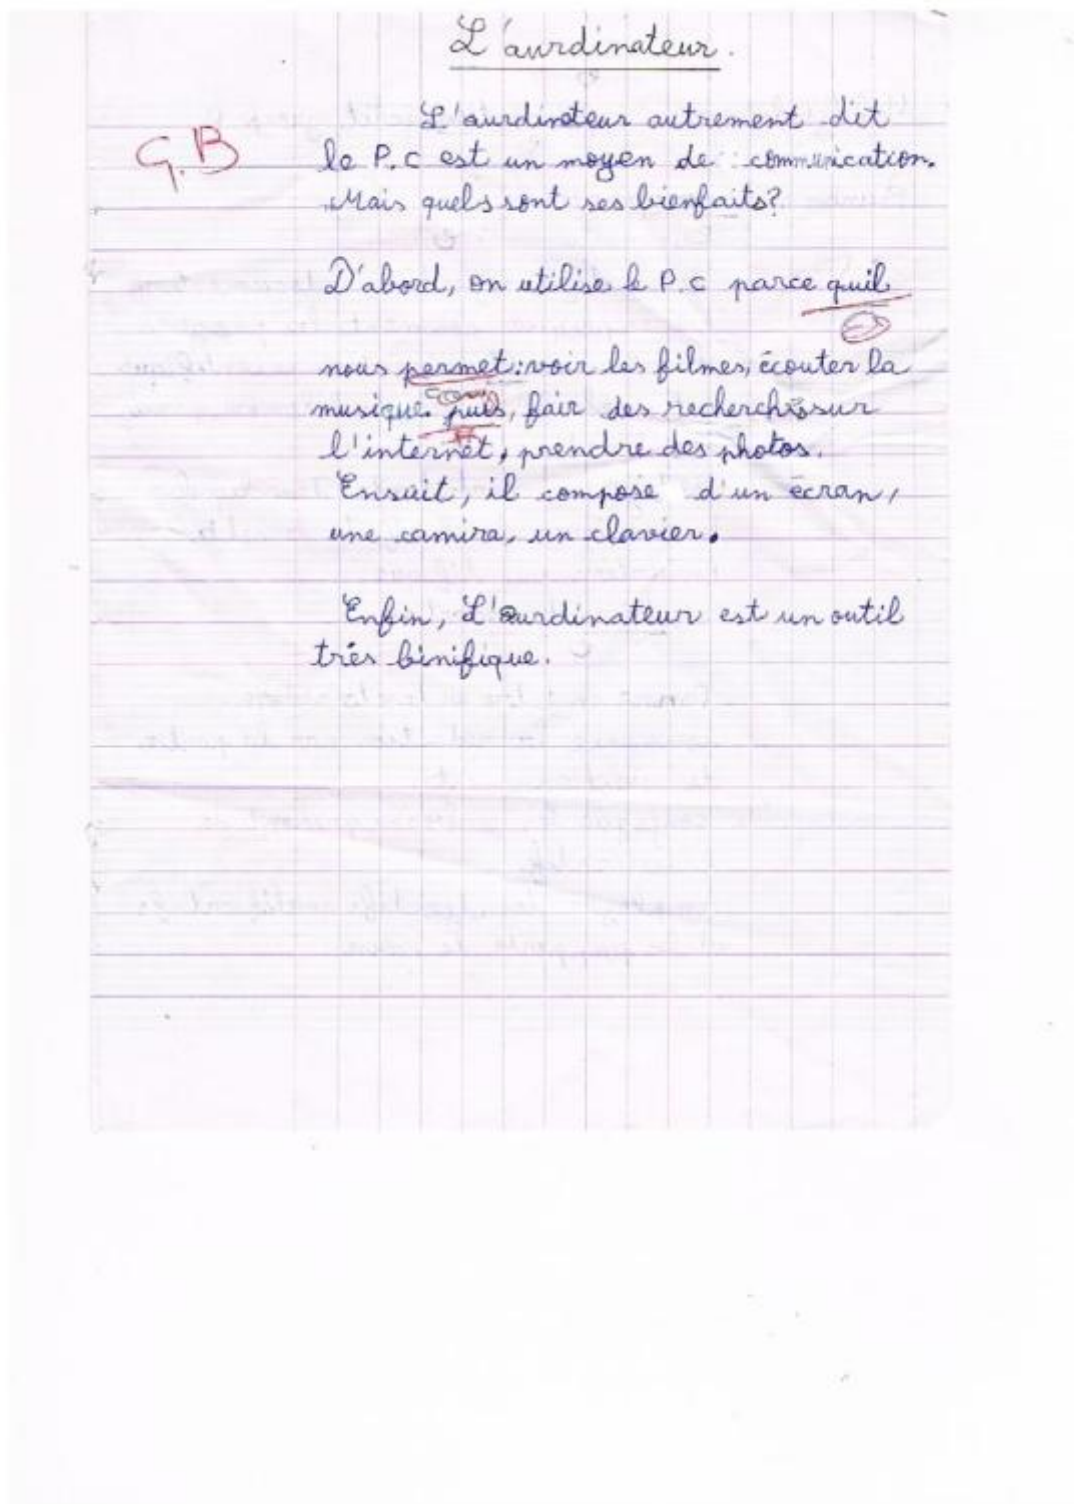 L'aurdinateur.
L'aurdinateur autrement dit
G.B
le P.C est un moyen de communication.
Mais quels sont ses bienfaits?
D'abord, on utilise le P.C parce quil
nous permet: voir les filmes, écouter la
musique. puis, fair des recherches sur
l'internet, prendre des photos.
Ensuit, il compose d'un écran,
une camira, un clavier.
Enfin, L'aurdinateur est un outil
trés binifique.